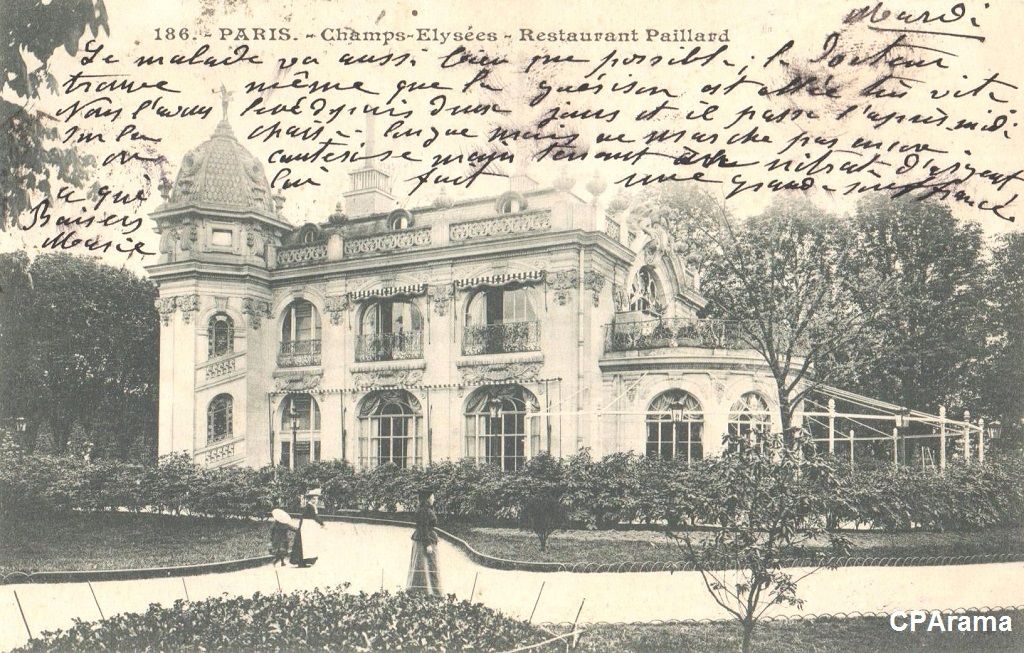 186. - PARIS. - Champs-Elysées - Restaurant Paillard
Mardi
Le malade va aussi bien que possible ; le Docteur
trouve même que la guérison est allée très vite
Nous l'avons levé depuis deux jours et il passe l'après midi
sur la chaise-longue mais ne marche pas encore
on cautérise maintenant avec nitrate d'argent
ce que lui fait une grande souffrance
Baisers
Marie
CPArama